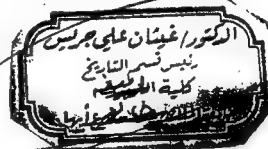 الدكتور/غيثان علي جريس
رئيس قسم التاريخ
كلية التربية
أبها